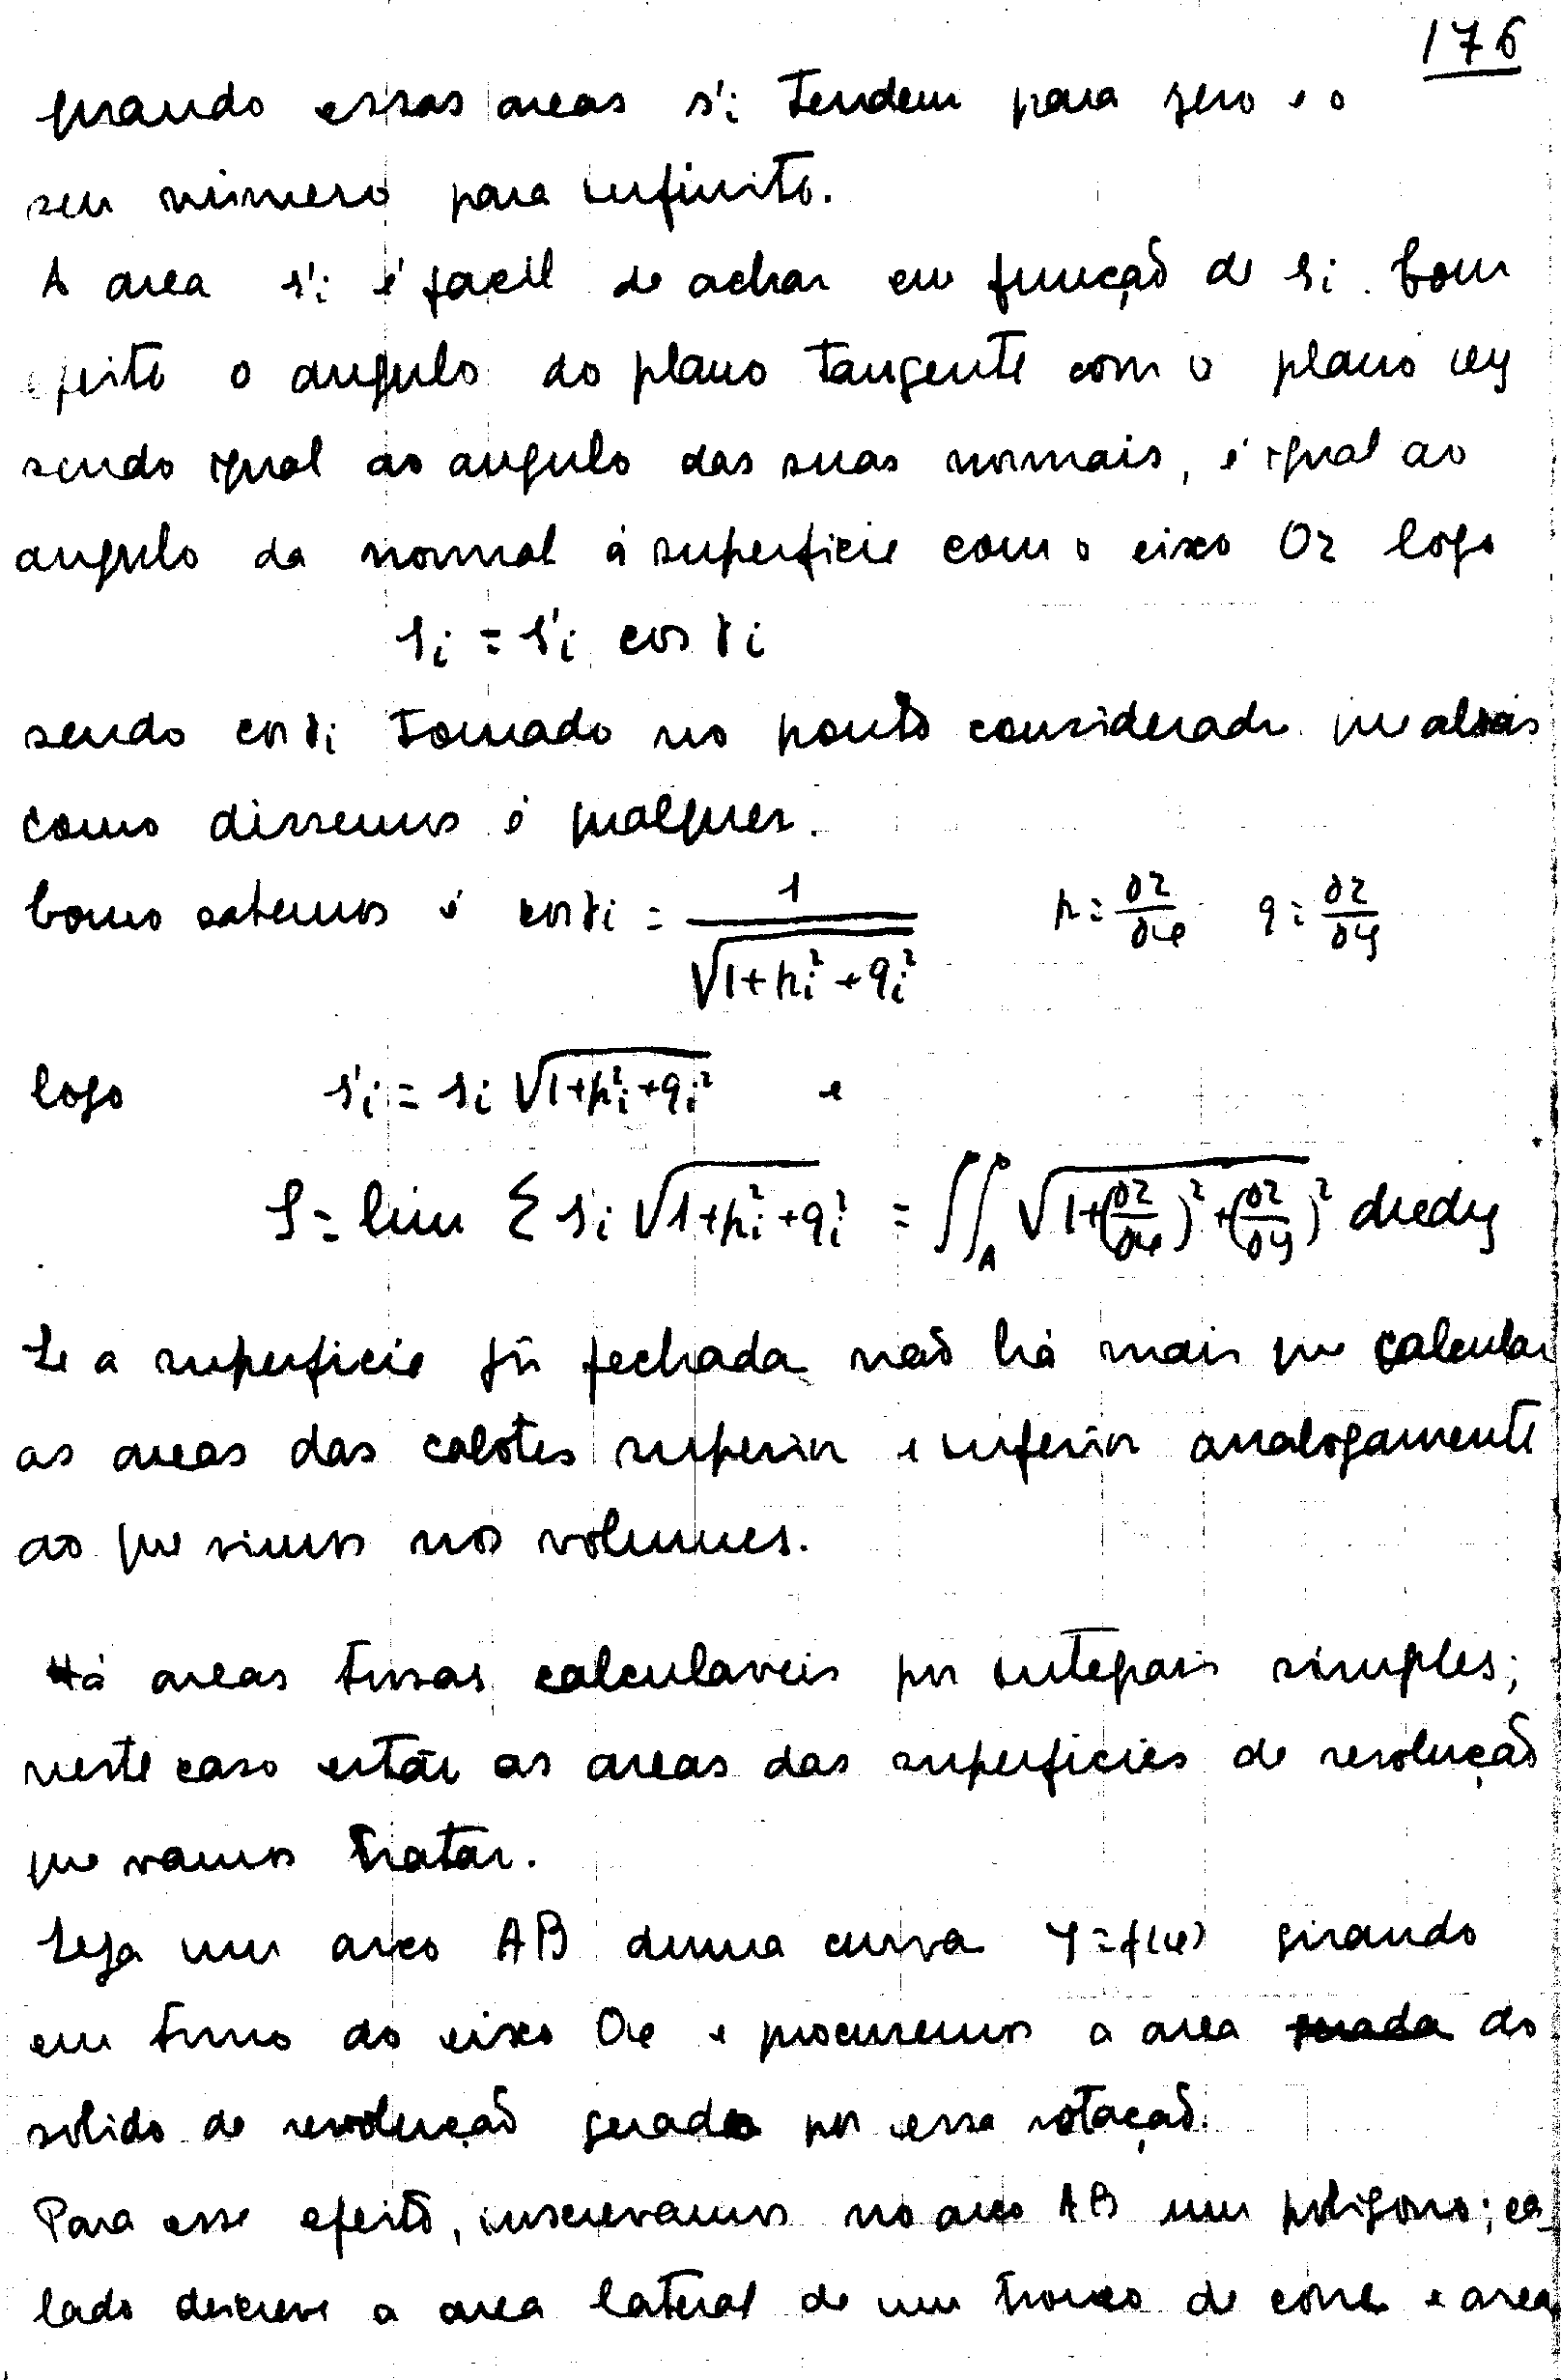 176
quando essas areas s'i tendem para zero e o
seu número para infinito.
A area s'i é facil de achar em função de si. Com
efeito o angulo do plano tangente com o plano xy
sendo igual ao angulo das suas normais, é igual ao
angulo da normal á superficie com o eixo Oz logo
si = s'i cos γi
sendo cos γi tomado no ponto considerado que aliás
como dissemos é qualquer.
Como sabemos é cos γi = 1/√(1+pi²+qi²) p = ∂z/∂x q = ∂z/∂y
logo s'i = si √(1+pi²+qi²) e
S = lim Σ si √(1+pi²+qi²) = ∫∫_A √(1+(∂z/∂x)²+(∂z/∂y)²) dxdy
Se a superficie fôr fechada não há mais que calcular
as areas das calotes superior e inferior analogamente
ao que vimos nos volumes.
Há areas curvas calculaveis por integrais simples;
neste caso estão as areas das superficies de revolução
que vamos tratar.
Seja um arco AB duma curva y = f(x) girando
em torno do eixo Ox e procuremos a area gerada do
solido de revolução gerado por essa rotação.
Para esse efeito, inscrevamos no arco AB um poligono; ca
lado descreve a area lateral de um tronco de cone e area